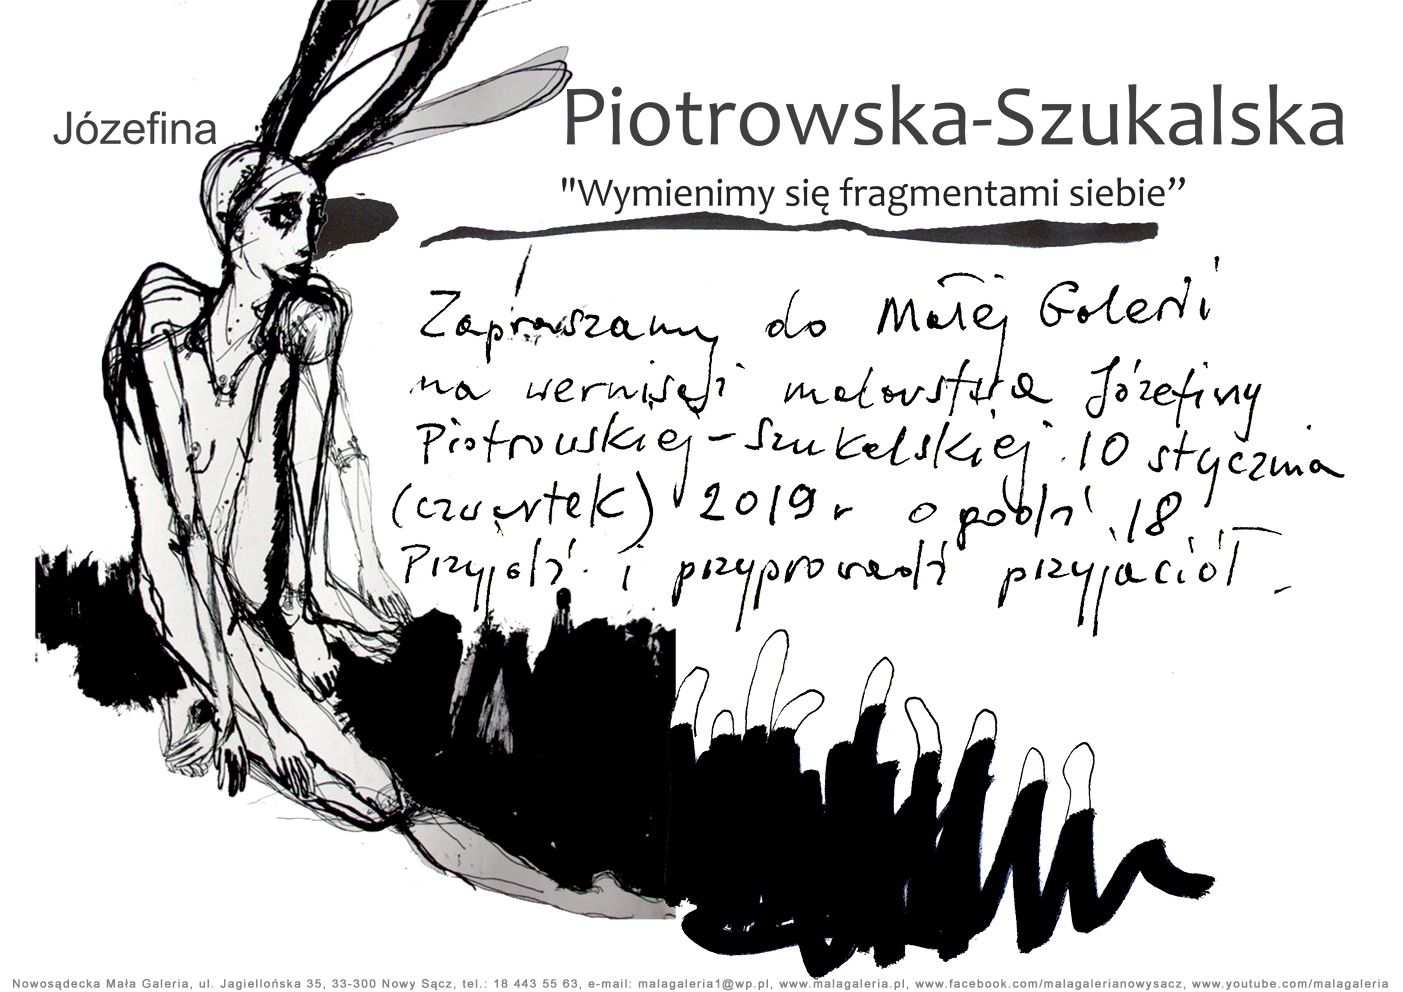 Józefina
Piotrowska-Szukalska
"Wymienimy się fragmentami siebie”
Zapraszamy do Małej Galerii
na wernisaż malarstwa Józefiny
Piotrowskiej-Szukalskiej 10 stycznia
(czwartek) 2019 r o godz. 18
Przyjdź i przyprowadź przyjaciół.
Nowosądecka Mała Galeria, ul. Jagiellońska 35, 33-300 Nowy Sącz, tel.: 18 443 55 63, e-mail: malagaleria1@wp.pl, www.malagaleria.pl, www.facebook.com/malagalerianowysacz, www.youtube.com/malagaleria